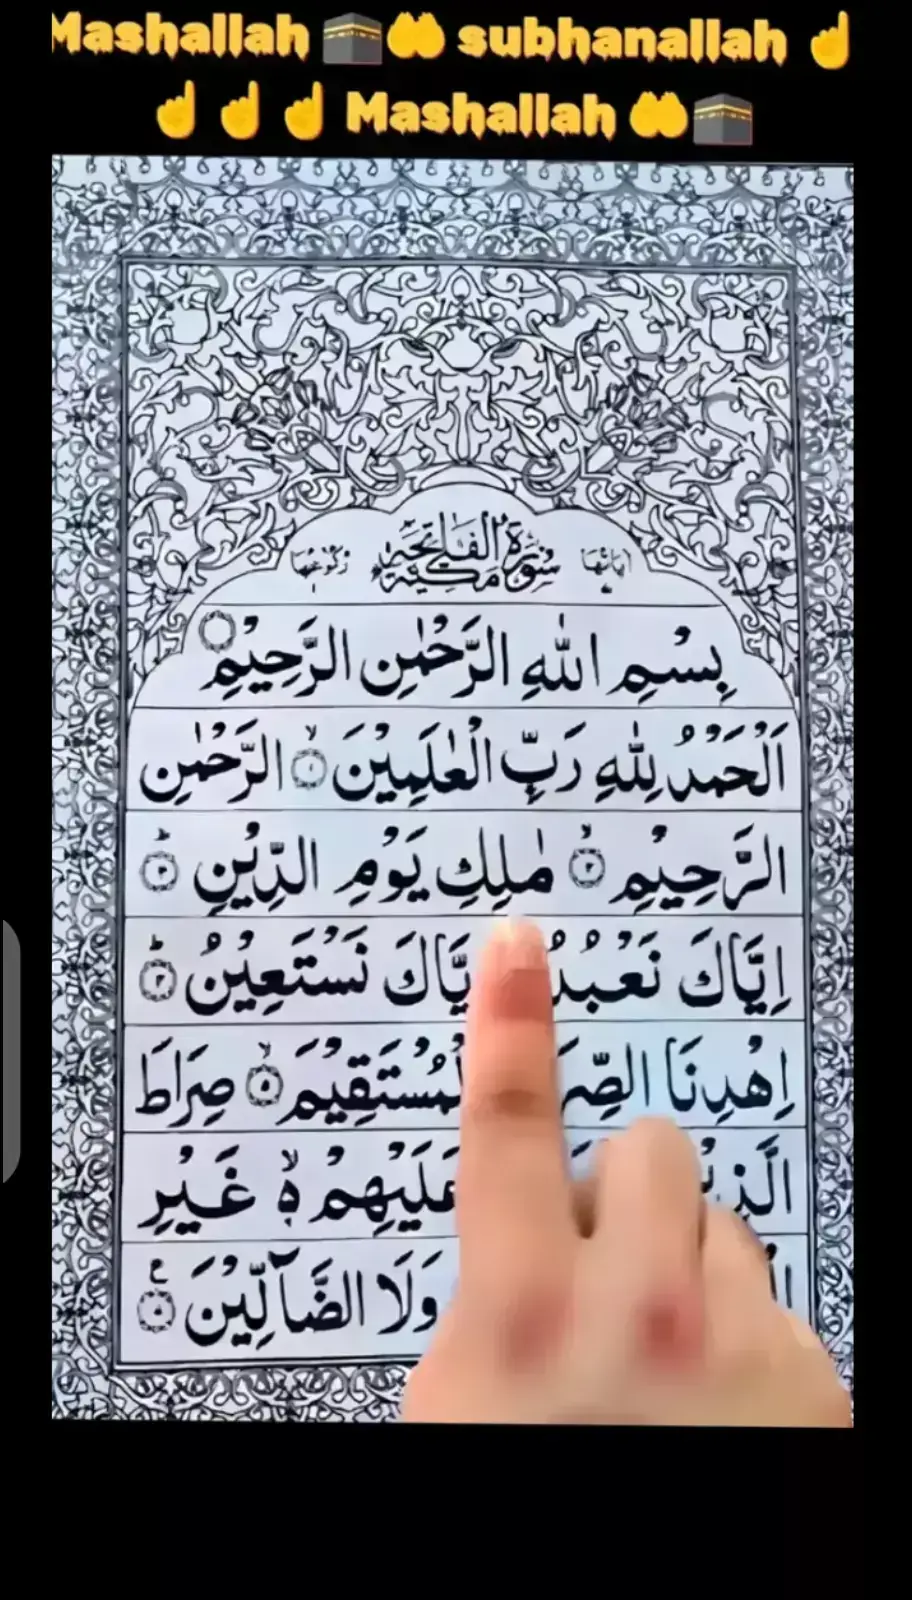 Mashallah 🕋🤲 subhanallah ☝️
☝️ ☝️ ☝️ Mashallah 🤲🕋
اٰیَاتُهَا سُوْرَةُ الْفَاتِحَةِ مَكِّيَّةٌ رُكُوْعُهَا
بِسْمِ اللّٰهِ الرَّحْمٰنِ الرَّحِيْمِ
اَلْحَمْدُ لِلّٰهِ رَبِّ الْعٰلَمِيْنَ ۙ۝۱ الرَّحْمٰنِ
الرَّحِيْمِ ۙ۝۲ مٰلِكِ يَوْمِ الدِّيْنِ ؕ۝۳
اِيَّاكَ نَعْبُدُ يَّاكَ نَسْتَعِيْنُ ؕ۝
اِهْدِنَا الصِّرَ لْمُسْتَقِيْمَ ۙ۝۵ صِرَاطَ
الَّذِيْ عَلَيْهِمْ ۙ۬ۥ غَيْرِ
وَلَا الضَّآلِّيْنَ ۝